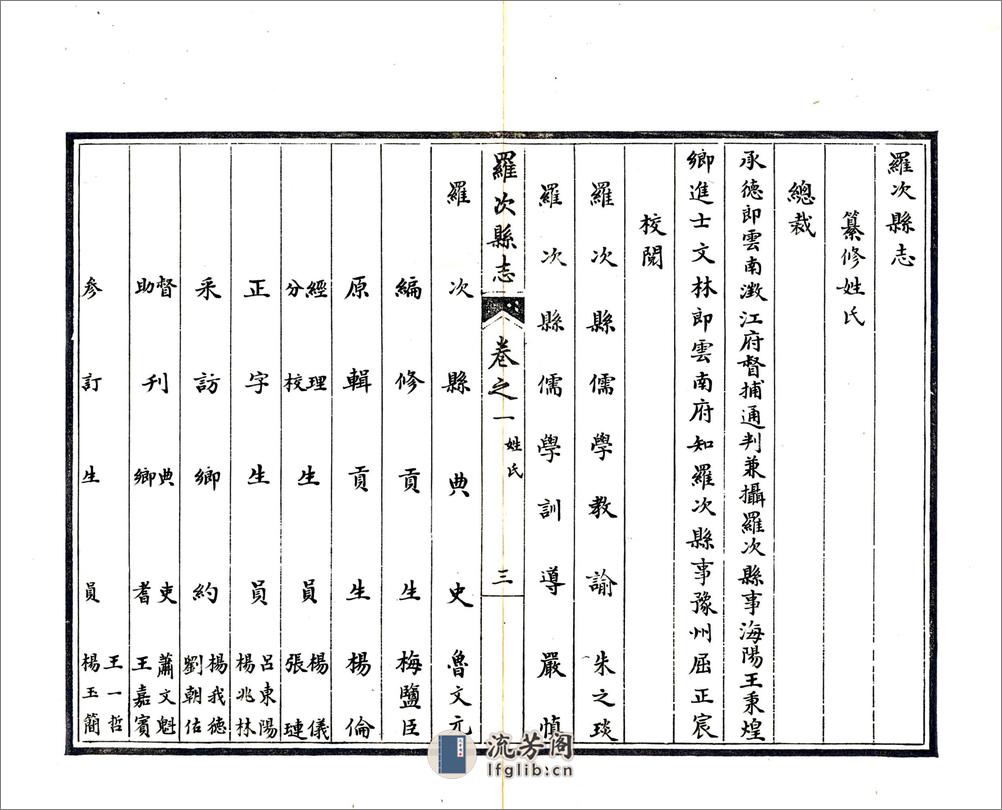 羅次縣志
纂修姓氏
總裁
承德郎雲南澂江府督捕通判兼攝羅次縣事海陽王秉煌
鄉進士文林郎雲南府知羅次縣事豫州屈正宸
校閱
羅次縣儒學教諭朱之琰
羅次縣儒學訓導嚴慎
羅次縣志 卷之一 姓氏 三
羅次縣典史魯文元
編修貢生梅鹽臣
原輯貢生楊倫
經理分校生員楊儀張璉
正字生員呂東陽楊兆林
采訪鄉約楊我德劉朝佑
督刊典吏蕭文魁
助刊鄉耆王嘉賓
參訂生員王一哲楊玉簡
流芳閣
lfglib.cn